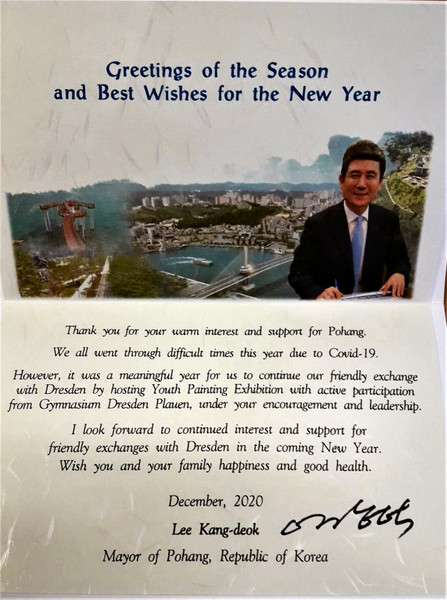 Greetings of the Season
and Best Wishes for the New Year
Thank you for your warm interest and support for Pohang.
We all went through difficult times this year due to Covid-19.
However, it was a meaningful year for us to continue our friendly exchange
with Dresden by hosting Youth Painting Exhibition with active participation
from Gymnasium Dresden Plauen, under your encouragement and leadership.
I look forward to continued interest and support for
friendly exchanges with Dresden in the coming New Year.
Wish you and your family happiness and good health.
December, 2020
Lee Kang-deok
Mayor of Pohang, Republic of Korea